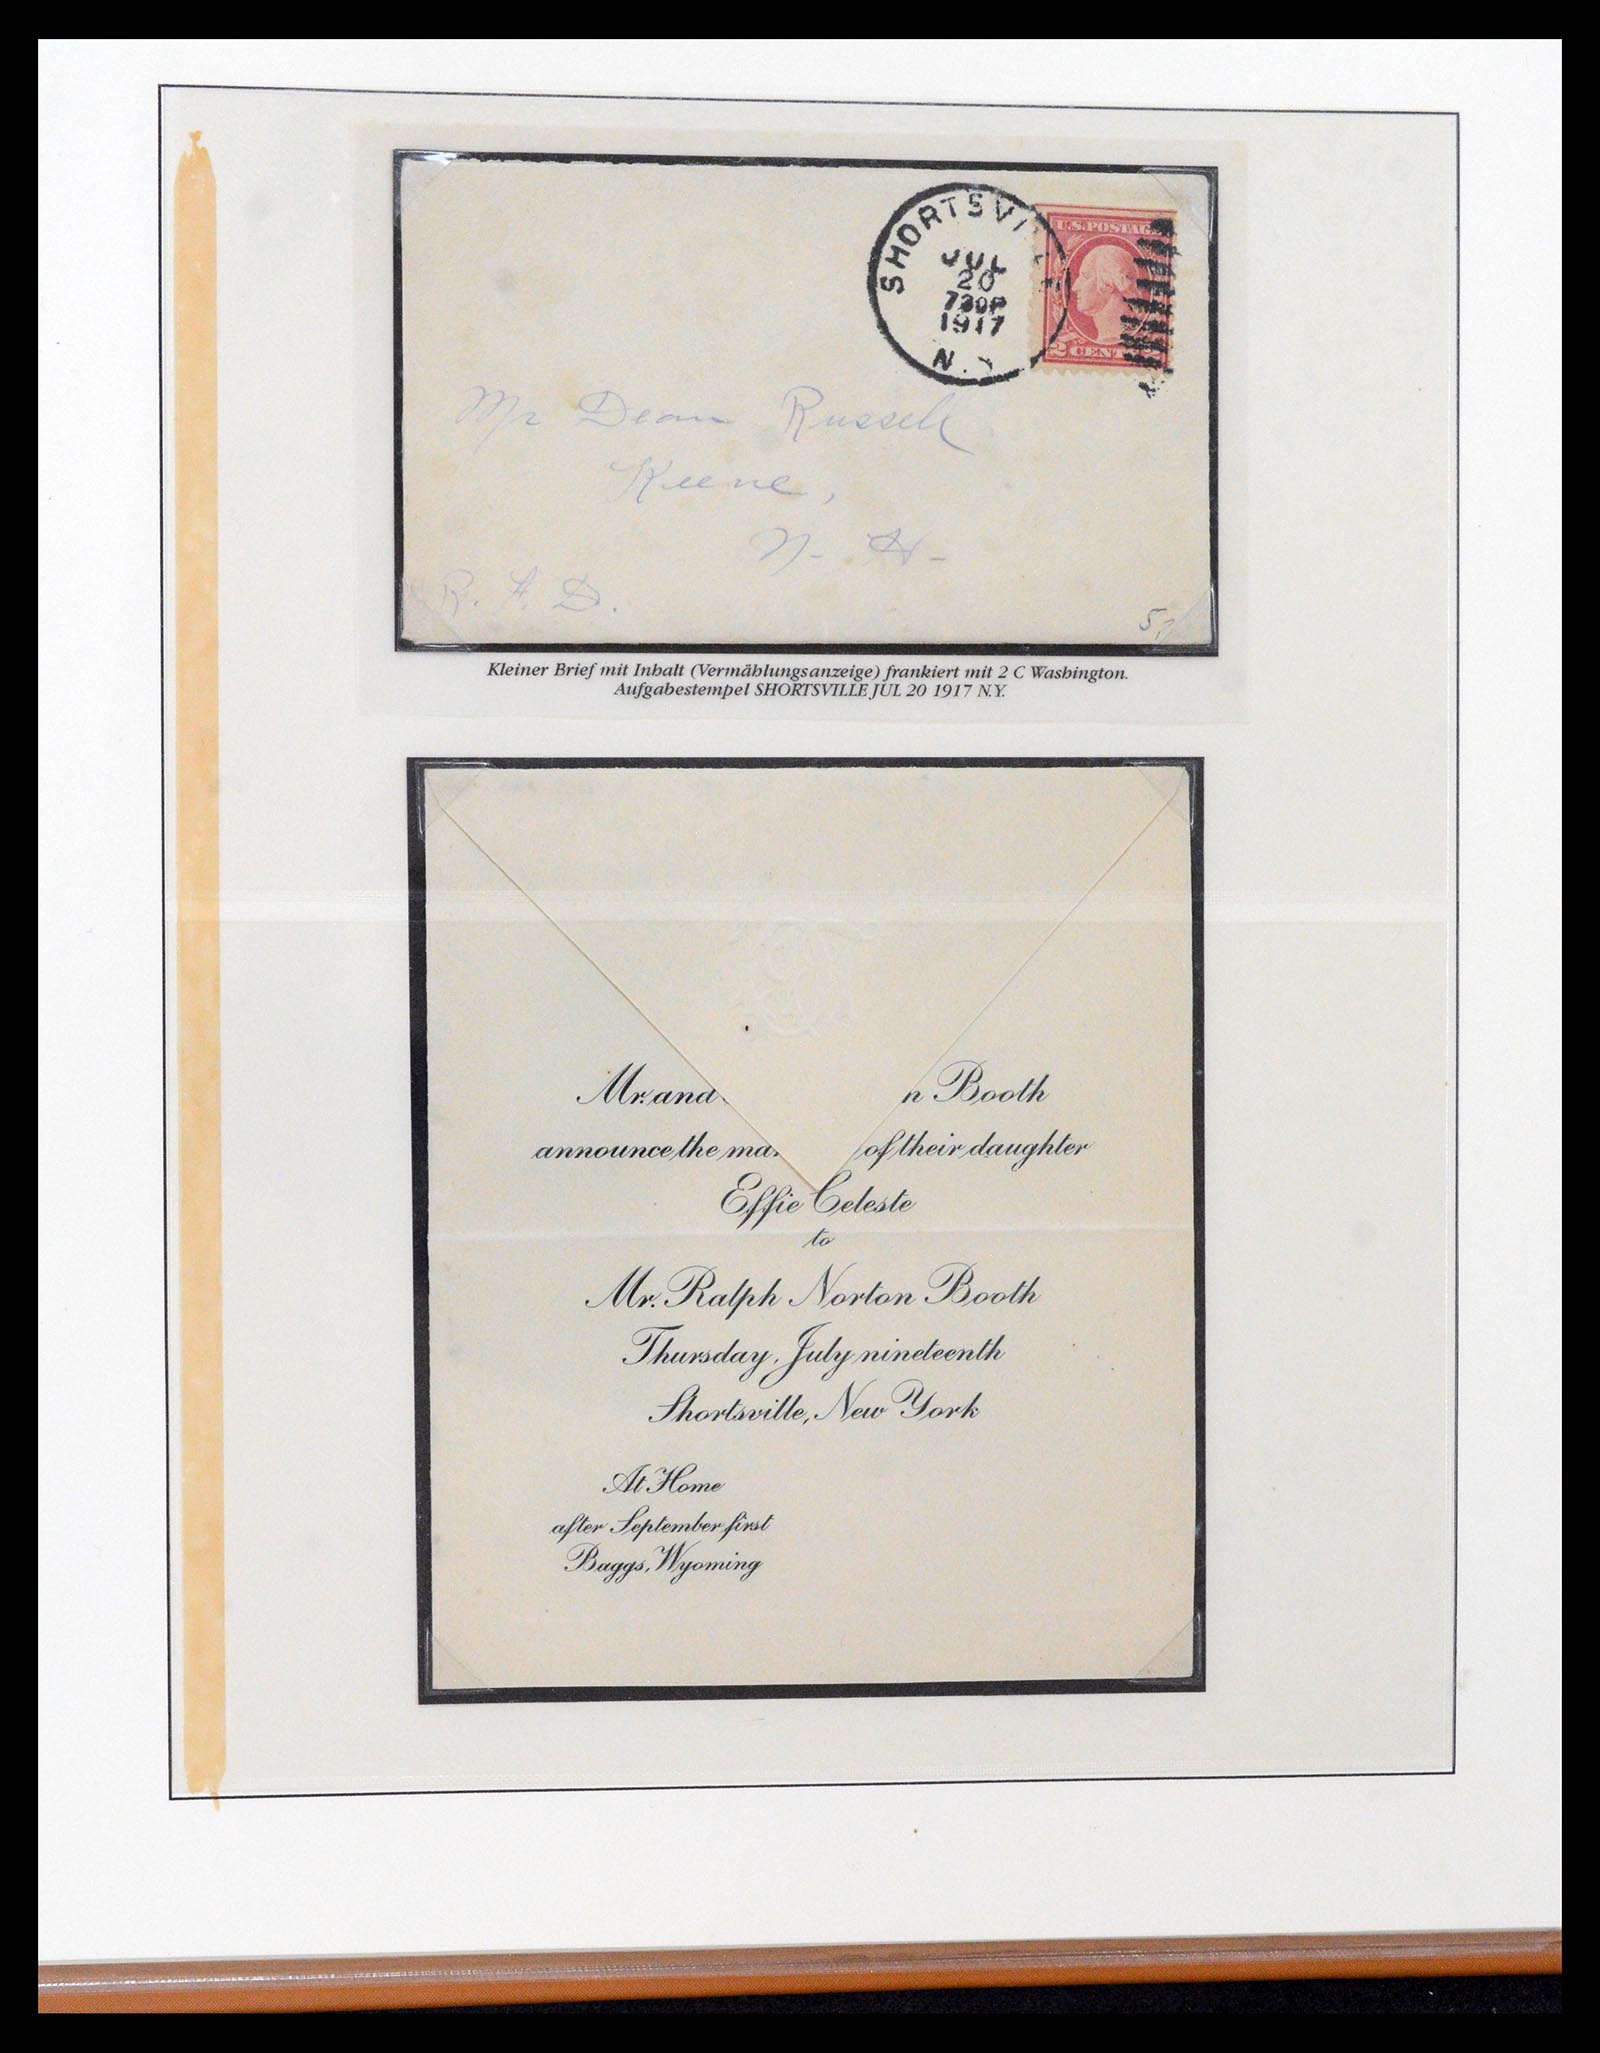 SHORTSVI
JUL
20
730P
1917
N.Y
U.S. POSTAG
2 CENT
Mr Dean Russell
Keene,
N. H.
R. F. D.
Kleiner Brief mit Inhalt (Vermählungsanzeige) frankiert mit 2 C Washington.
Aufgabestempel SHORTSVILLE JUL 20 1917 N.Y.
Mr. and n Booth
announce the ma of their daughter
Effie Celeste
to
Mr. Ralph Norton Booth
Thursday, July nineteenth
Shortsville, New York
At Home
after September first
Baggs, Wyoming